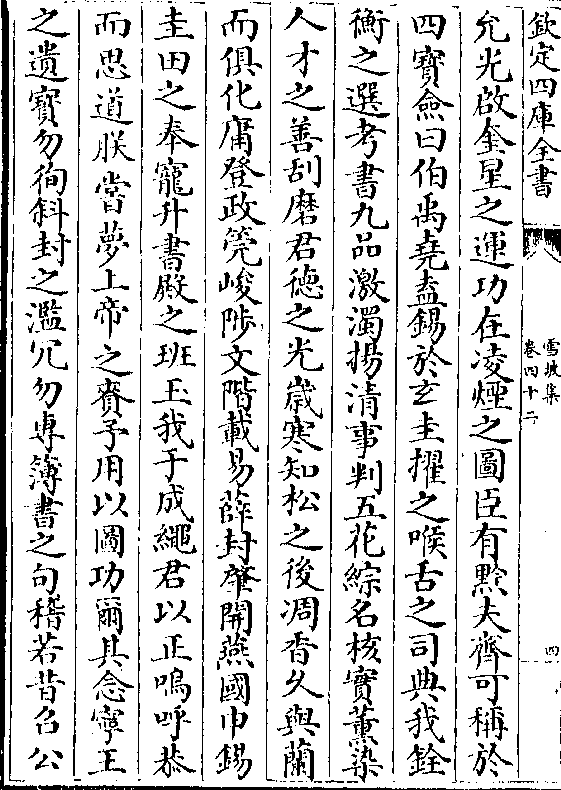 欽定四庫全書
雪坡集
卷四十二
四
允光啟金星之運功在凌煙之圖臣有黔夫齊可稱於
四寳僉曰伯禹堯盍錫於玄圭擢之喉舌之司典我銓
衡之選考書九品激濁揚清事判五花綜名核實薫染
人才之善刮磨君德之光歲寒知松之後凋香久與蘭
而俱化庸登政筦峻陟文階載易薛封肇開燕國巾錫
圭田之奉寵升書殿之班玉我于成繩君以正嗚呼恭
而思道朕嘗夢上帝之賚予用以圖功爾其念寧王
之遺寳勿徇斜封之濫冗勿専簿書之句稽若昔召公